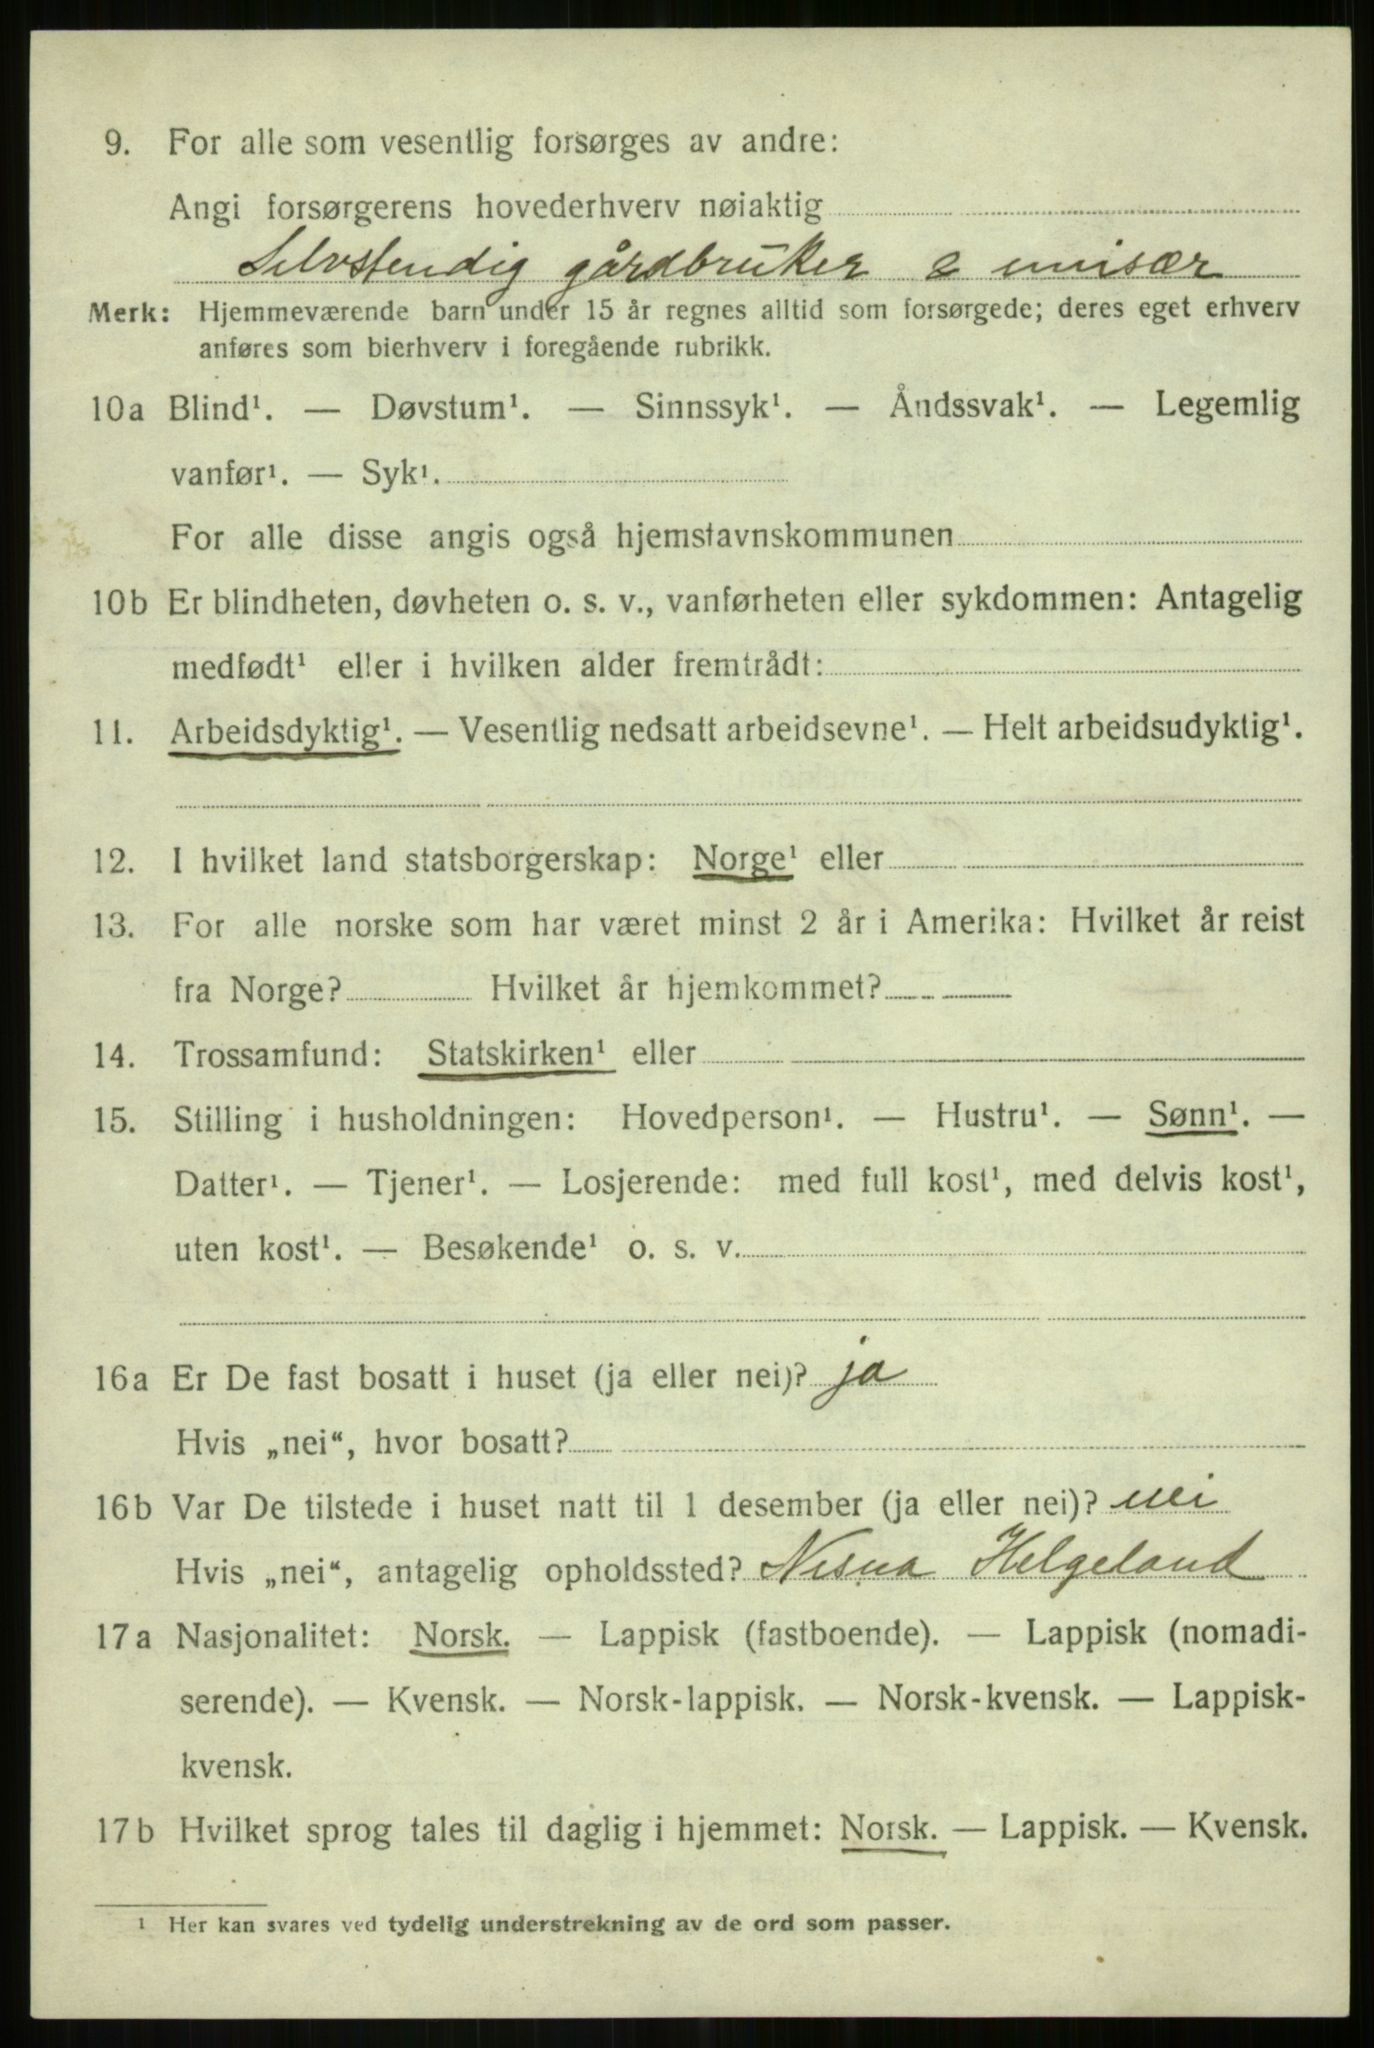 9. For alle som vesentlig forsørges av andre:
Angi forsørgerens hovederhverv nøiaktig
Selvstendig gårdbruker &
Merk: Hjemmeværende barn under 15 år regnes alltid som forsørgede; deres eget erhverv
anføres som bierhverv i foregående rubrikk.
10a Blind¹. — Døvstum¹. — Sinnssyk¹. — Åndssvak¹. — Legemlig
vanfør¹. — Syk¹.
For alle disse angis også hjemstavnskommunen
10b Er blindheten, døvheten o. s. v., vanførheten eller sykdommen: Antagelig
medfødt¹ eller i hvilken alder fremtrådt:
11. Arbeidsdyktig¹. — Vesentlig nedsatt arbeidsevne¹. — Helt arbeidsudyktig¹.
12. I hvilket land statsborgerskap: Norge¹ eller
13. For alle norske som har været minst 2 år i Amerika: Hvilket år reist
fra Norge? Hvilket år hjemkommet?
14. Trossamfund: Statskirken¹ eller
15. Stilling i husholdningen: Hovedperson¹. — Hustru¹. — Sønn¹. —
Datter¹. — Tjener¹. — Losjerende: med full kost¹, med delvis kost¹,
uten kost¹. — Besøkende¹ o. s. v.
16a Er De fast bosatt i huset (ja eller nei)? ja
Hvis „nei“, hvor bosatt?
16b Var De tilstede i huset natt til 1 desember (ja eller nei)? nei
Hvis „nei“, antagelig opholdssted? Nesna Helgeland
17a Nasjonalitet: Norsk. — Lappisk (fastboende). — Lappisk (nomadi-
serende). — Kvensk. — Norsk-lappisk. — Norsk-kvensk. — Lappisk-
kvensk.
17b Hvilket sprog tales til daglig i hjemmet: Norsk. — Lappisk. — Kvensk.
¹ Her kan svares ved tydelig understrekning av de ord som passer.